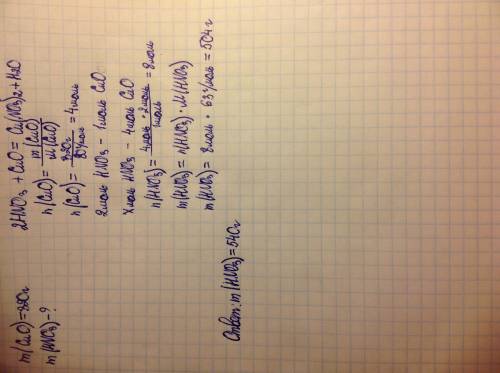 m(CuO)=320г
m(HNO₃)-?
2HNO₃ + CuO = Cu(NO₃)₂ + H₂O
n(CuO) = m(CuO) / M(CuO)
n(CuO) = 320г / 80г/моль = 4моль
2моль HNO₃ - 1моль CuO
Xмоль HNO₃ - 4моль CuO
n(HNO₃) = 4моль * 2моль / 1моль = 8моль
m(HNO₃) = n(HNO₃) · M(HNO₃)
m(HNO₃) = 8моль · 63г/моль = 504г
Ответ: m(HNO₃) = 540г